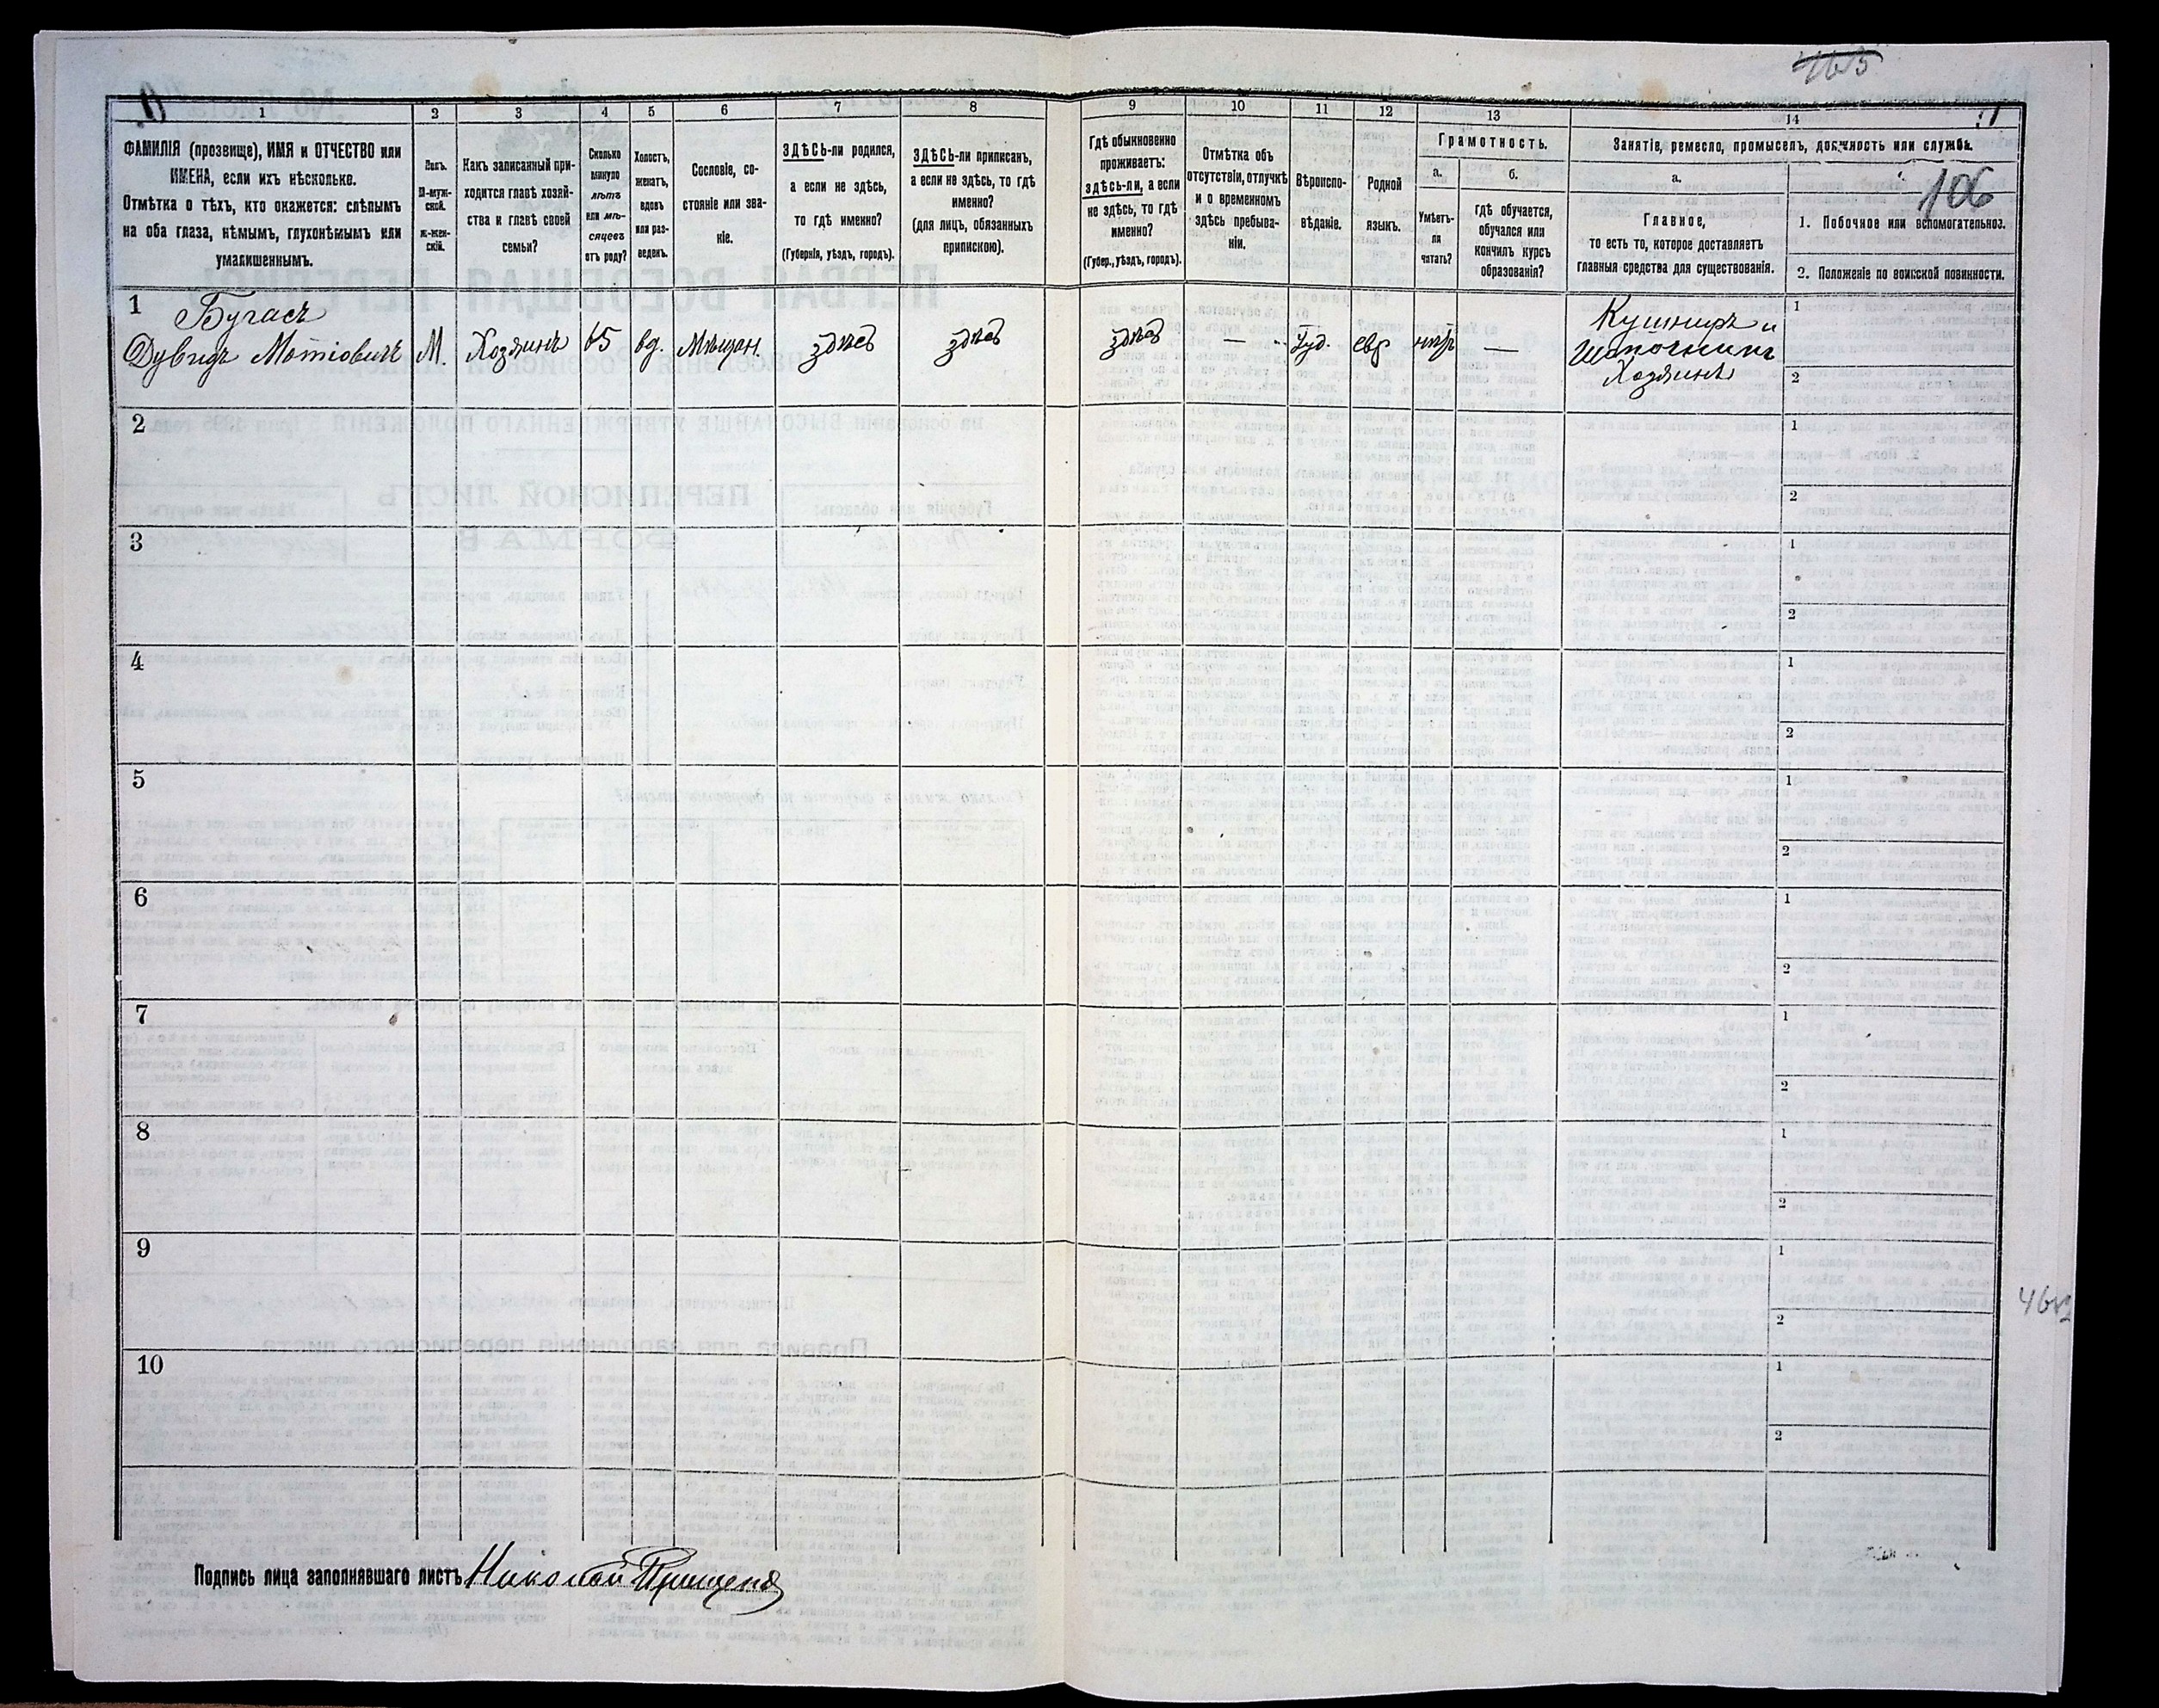 1
2
3
4
5
6
7
8
9
10
11
12
13
14
ФАМИЛІЯ (прозвище), ИМЯ и ОТЧЕСТВО или
ИМЕНА, если ихъ нѣсколько.
Отмѣтка о тѣхъ, кто окажется: слѣпымъ
на оба глаза, нѣмымъ, глухонѣмымъ или
умалишеннымъ.
М-муж-
ской.
ж-жен-
скій.
Какъ записанный при-
ходится главѣ хозяй-
ства и главѣ своей
семьи?
Сколько
минуло
лѣтъ
или мѣ-
сяцевъ
отъ роду?
Холостъ,
женатъ,
вдовъ
или раз-
веденъ.
Сословіе, со-
стояніе или зва-
ніе.
ЗДѢСЬ-ли родился,
а если не здѣсь,
то гдѣ именно?
(Губернія, уѣздъ, городъ).
ЗДѢСЬ-ли приписанъ,
а если не здѣсь, то гдѣ
именно?
(для лицъ, обязанныхъ
припискою).
Гдѣ обыкновенно
проживаетъ:
здѣсь-ли, а если
не здѣсь, то гдѣ
именно?
(Губер., уѣздъ, городъ).
Отмѣтка объ
отсутствіи, отлучкѣ
и о временномъ
здѣсь пребыва-
ніи.
Вѣроиспо-
вѣданіе.
Родной
языкъ.
Грамотность.
а.
Умѣетъ-
ли
читать?
б.
гдѣ обучается,
обучался или
кончилъ курсъ
образованія?
Занятіе, ремесло, промыселъ, должность или служба.
а.
Главное,
то есть то, которое доставляетъ
главныя средства для существованія.
106
1. Побочное или вспомогательное.
2. Положеніе по воинской повинности.
1
Бугасъ
Дувидъ Мотіовичъ
М.
Хозяинъ
65
вд.
Мѣщан.
здѣсь
здѣсь
здѣсь
—
Іуд.
евр
—
Кушниръ и
Шапочникъ
Хозяинъ
1
2
2
1
2
3
1
2
4
1
2
5
1
2
6
1
2
7
1
2
8
1
2
9
1
2
10
1
2
Подпись лица заполнявшаго листъ Николай